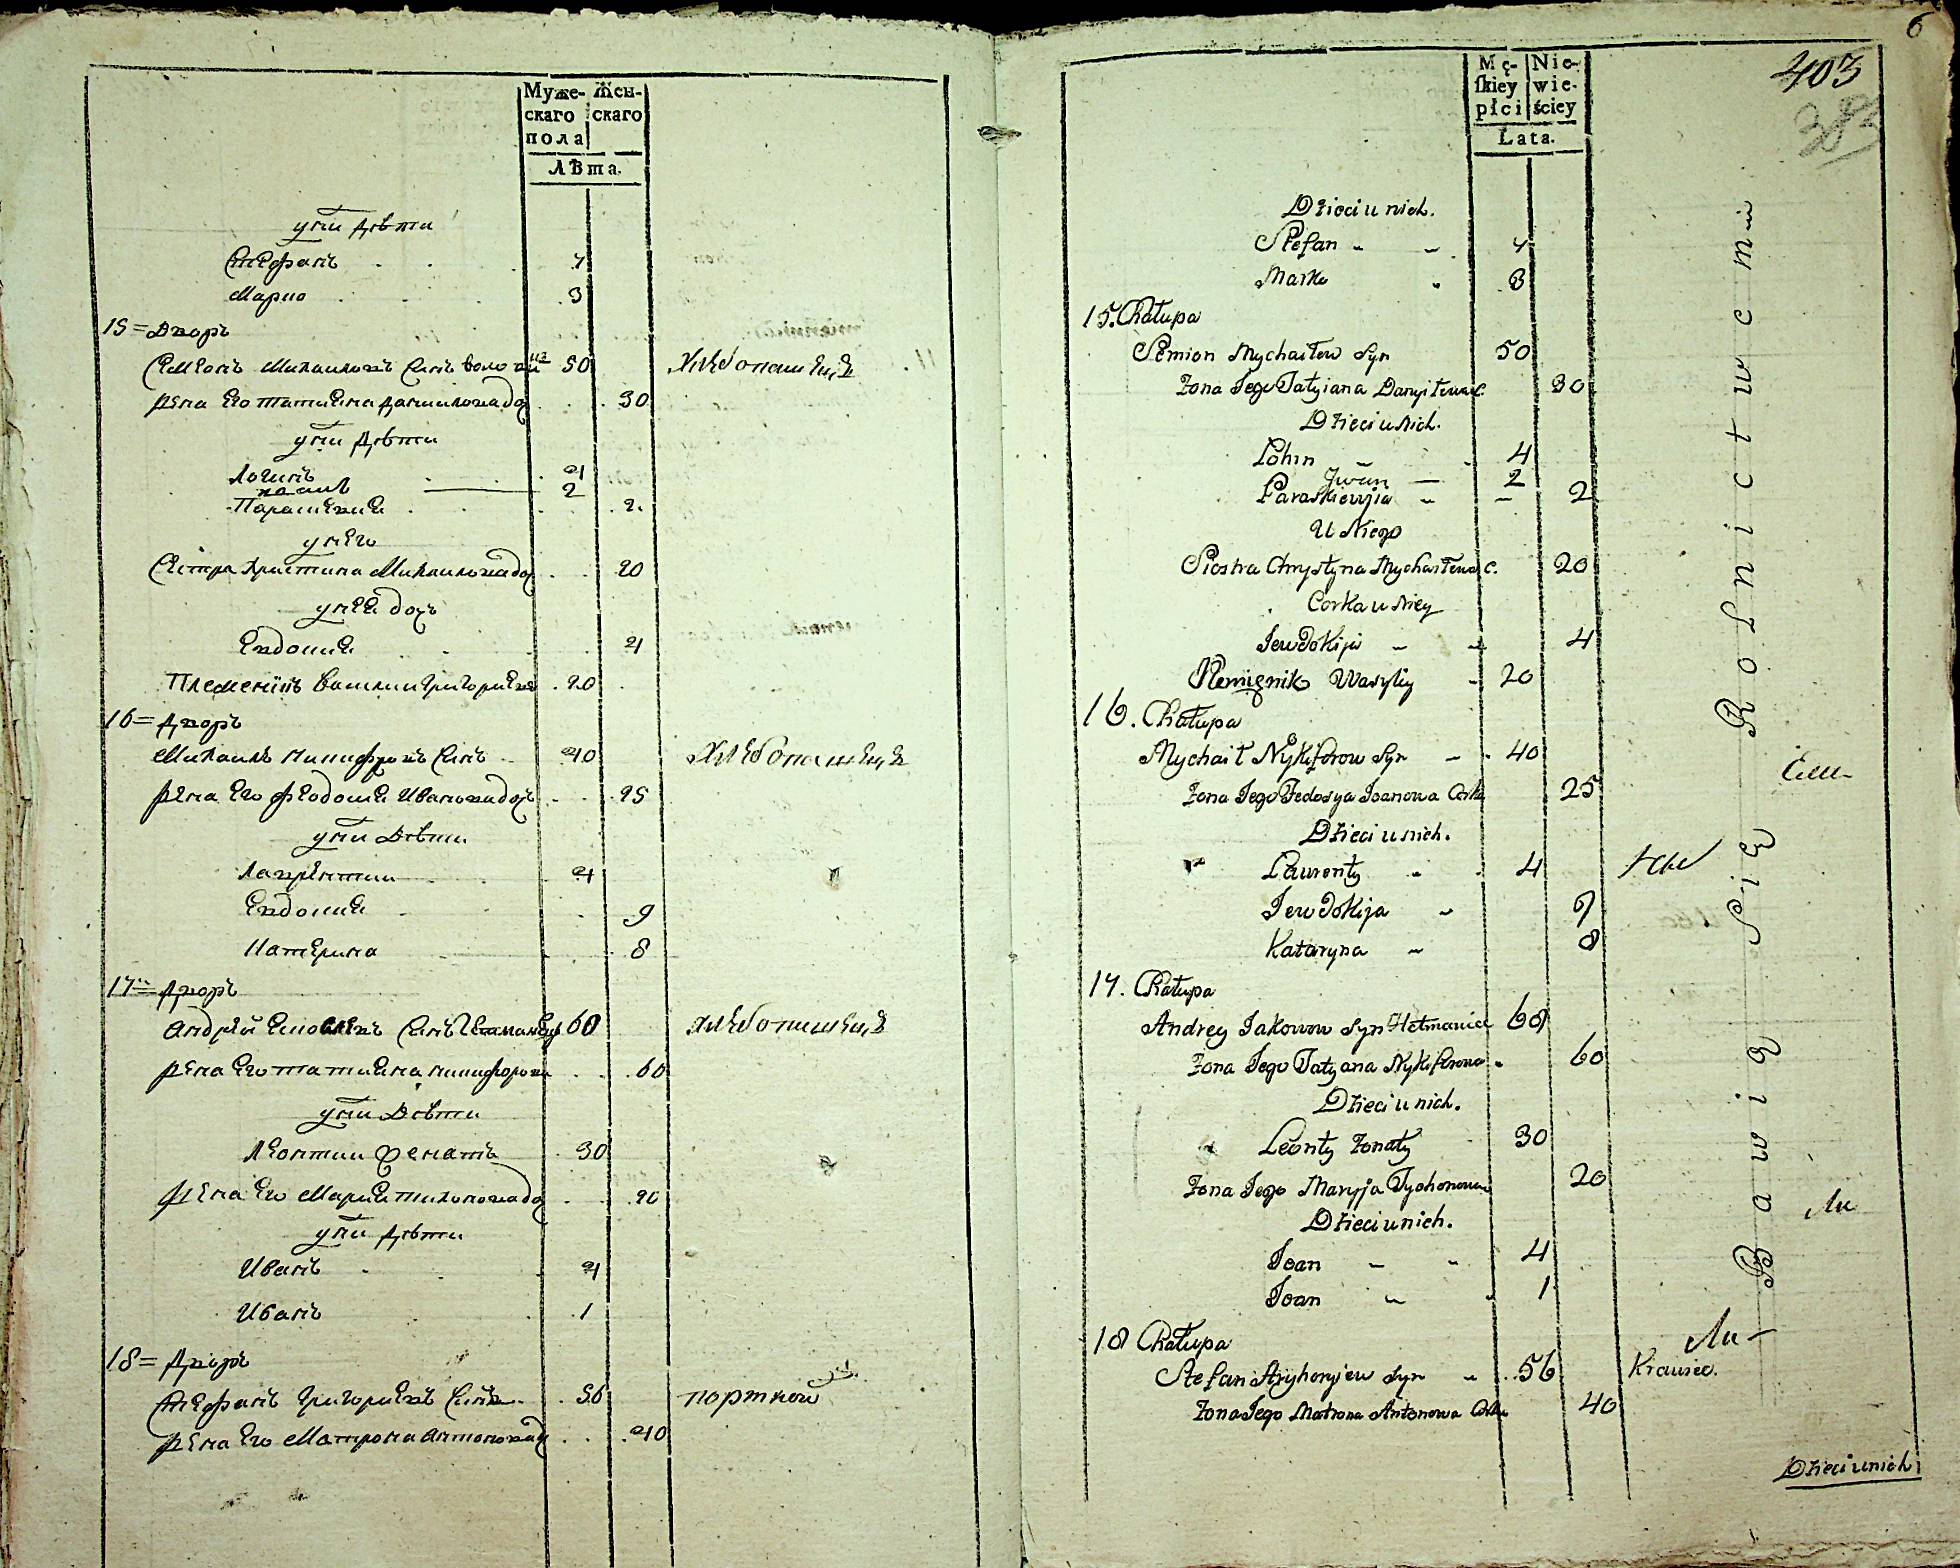 Муже- Жен-
скаго скаго
пола
Лѣта.
у них дѣти
Стефанъ 7
Марко 3
15 = Дворъ
Семіонъ Михаиловъ синъ 50 хлѣбопашецъ
жена его Татияна Даниловна доч 30
у них дѣти
Логинъ 4
2
Парасковия 2
у него
Сестра Християна Михаилова доч 20
у нея доч
Евдокия 4
Племенникъ Василии Григориевъ 20
16 = Дворъ
Михаилъ Никифоровъ синъ 40 хлѣбопашецъ
жена его Феодосия Иванова доч 25
у них дѣти
Лаврентии 4
Евдокия 9
Катерина 8
17 = Дворъ
Андрей синъ 60 хлѣбопашецъ
жена его Татияна Никифорова 60
у них дѣти
Леонтии женатъ 30
жена его Мария Тихонова до 20
у них дѣти
Иванъ 4
Иванъ 1
18 = Дворъ
Стефанъ Григориевъ синъ 56 портной
жена его Матрона Антонова 40
6
403
383
Mę- Nie-
ſkiey wie-
płci ściey
Lata.
Dzieci u nich.
Stefan 7
Marko 3
15. Chałupa
Semion Mychaiłow Syn 50
Żona Jego Tatyiana Danyiłowa C. 30
Dzieci u nich.
Lohin 4
Jwan 2
Paraskiewija 2
U Niego
Siostra Chrystyna Mychaiłowa C. 20
Corka u Niey
Jewdokija 4
Plemięnik Wasyliy 20
16. Chałupa
Mychaił Nykiforow Syn 40
Żona Jego Fedosya Joanowa Corka 25
Dzieci u nich.
Laurenty 4
Jewdokija 9
Kataryna 8
17. Chałupa
Andrey Jakowow Syn Hetmaniec 60
Żona Jego Tatyana Nykiforowa 60
Dzieci u nich.
Leonty Żonaty 30
Żona Jego Maryja Tychonowa 20
Dzieci u nich.
Joan 4
Joan 1
18 Chałupa
Stefan Hryhoryiew Syn 56 Krawiec.
Żona Jego Matrona Antonowa Corka 40
Bawią się Rolnictwem
Dzieci u nich